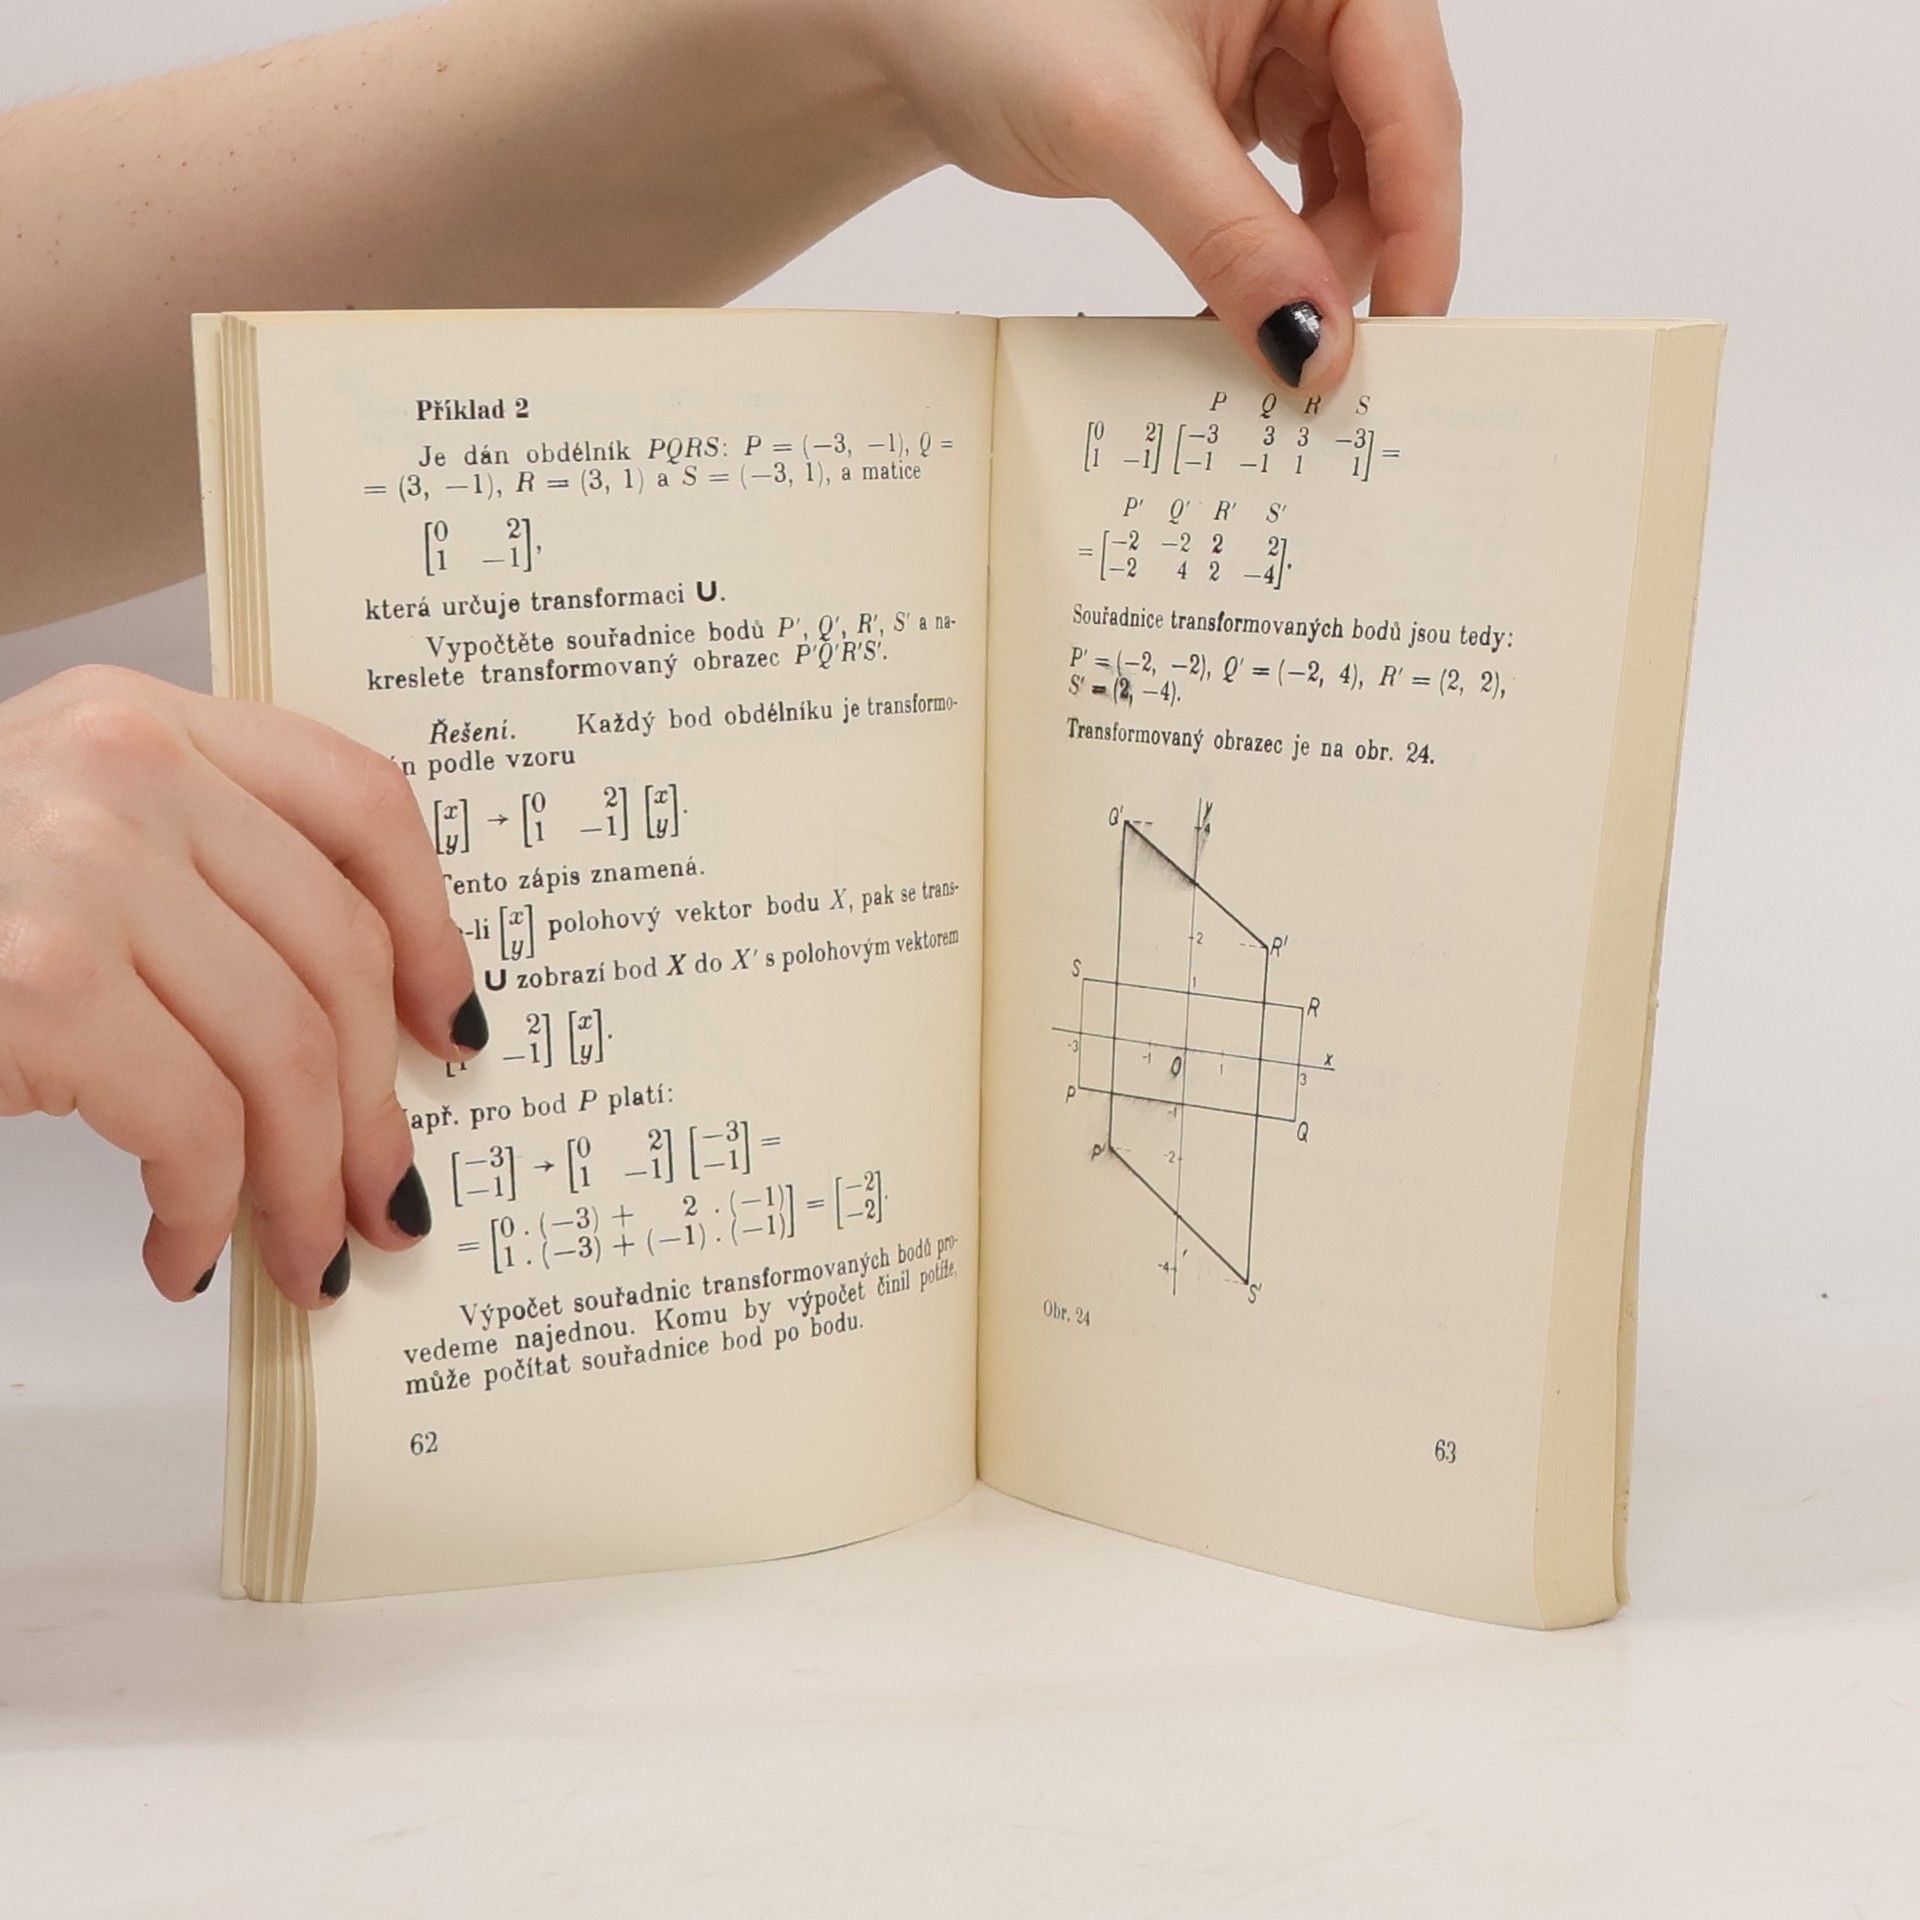 Příklad 2
Je dán obdélník PQRS: P = (−3, −1), Q =
= (3, −1), R = (3, 1) a S = (−3, 1), a matice
[0 2]
[1 −1],
která určuje transformaci U.
Vypočtěte souřadnice bodů P′, Q′, R′, S′ a na-
kreslete transformovaný obrazec P′Q′R′S′.
Řešení. Každý bod obdélníku je transformo-
podle vzoru
[x] → [0 2] [x]
[y] [1 −1] [y].
Tento zápis znamená.
-li [x] polohový vektor bodu X, pak se trans-
[y]
U zobrazí bod X do X′ s polohovým vektorem
2] [x]
−1] [y].
apř. pro bod P platí:
[−3] → [0 2] [−3] =
[−1] [1 −1] [−1]
= [0 . (−3) + 2 . (−1)] = [−2]
[1 . (−3) + (−1) . (−1)] [−2].
Výpočet souřadnic transformovaných bodů pro-
vedeme najednou. Komu by výpočet činil potíže,
může počítat souřadnice bod po bodu.
62
P Q R S
[0 2] [−3 3 3 −3] =
[1 −1] [−1 −1 1 1]
P′ Q′ R′ S′
= [−2 −2 2 2]
[−2 4 2 −4].
Souřadnice transformovaných bodů jsou tedy:
P′ = (−2, −2), Q′ = (−2, 4), R′ = (2, 2),
S′ = (2, −4).
Transformovaný obrazec je na obr. 24.
Q′ y
4
2 R′
S 1 R
-3 -1 0 1 3 x
P -1 Q
P′ -2
-4 S′
Obr. 24
63